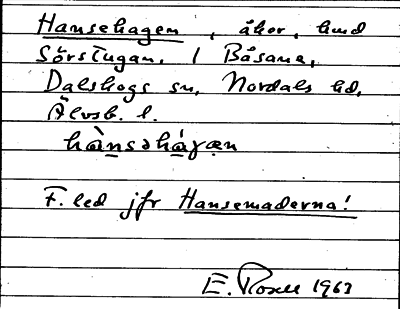 Hansehagen, åker, hmd
Sörstugan, 1 Båsane,
Dalskogs sn, Nordals hd,
Älvsb. l.
hànsəháɣæn
F. led jfr Hansemaderna!
E. Rosell 1963